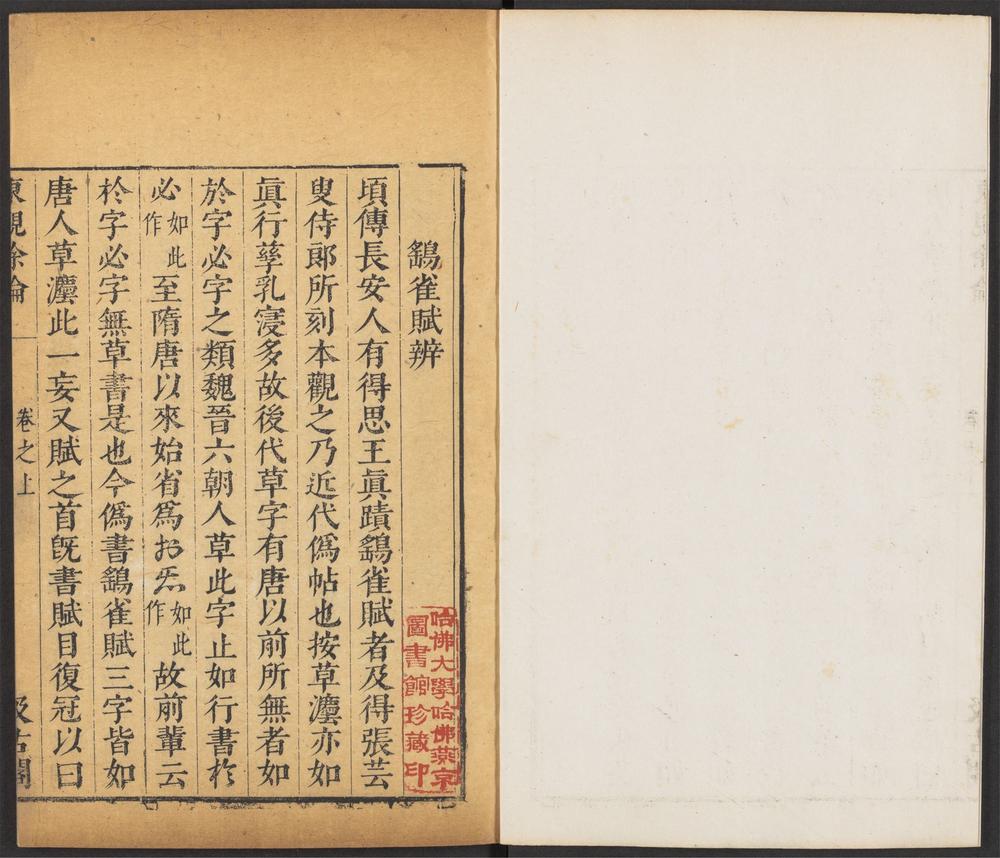 鷂雀賦辨
頃傳長安人有得思王眞蹟鷂雀賦者及得張芸
叟侍郎所刻本觀之乃近代僞帖也按草灋亦如
眞行孳乳寖多故後代草字有唐以前所無者如
於字必字之類魏晉六朝人草此字止如行書扵
必如此作至隋唐以來始省爲如此作故前輩云
扵字必字無草書是也今僞書鷂雀賦三字皆如
唐人草灋此一妄又賦之首旣書賦目復冠以曰
東觀餘論 卷之上 汲古閣
哈佛大學哈佛燕京
圖書館珍藏印